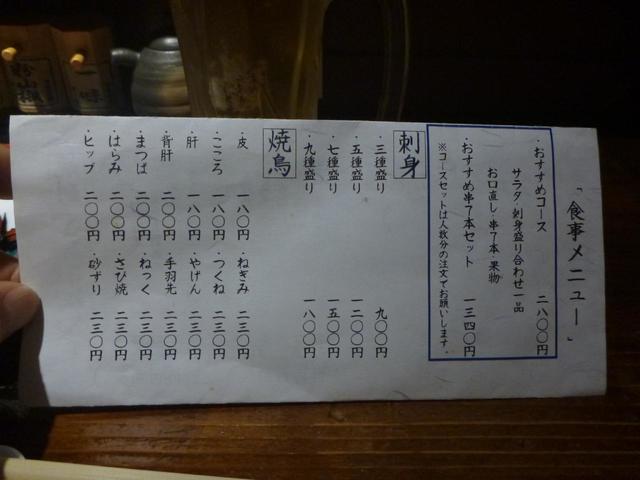 「食事メニュー」
・おすすめコース 二八〇〇円
サラダ・刺身盛り合わせ一品
お口直し・串7本・果物
・おすすめ串7本セット 一三四〇円
※コースセットは人数分の注文でお願いします。
刺身
・三種盛り 九〇〇円
・五種盛り 一二〇〇円
・七種盛り 一五〇〇円
・九種盛り 一八〇〇円
焼鳥
・皮 一八〇円
・こころ 一八〇円
・肝 一八〇円
・背肝 二〇〇円
・まつば 二〇〇円
・はらみ 二〇〇円
・ヒップ 二〇〇円
・ねぎみ 二三〇円
・つくね 二三〇円
・やげん 二三〇円
・手羽先 二三〇円
・ねっく 二三〇円
・さび焼 二三〇円
・砂ずり 二三〇円
一味